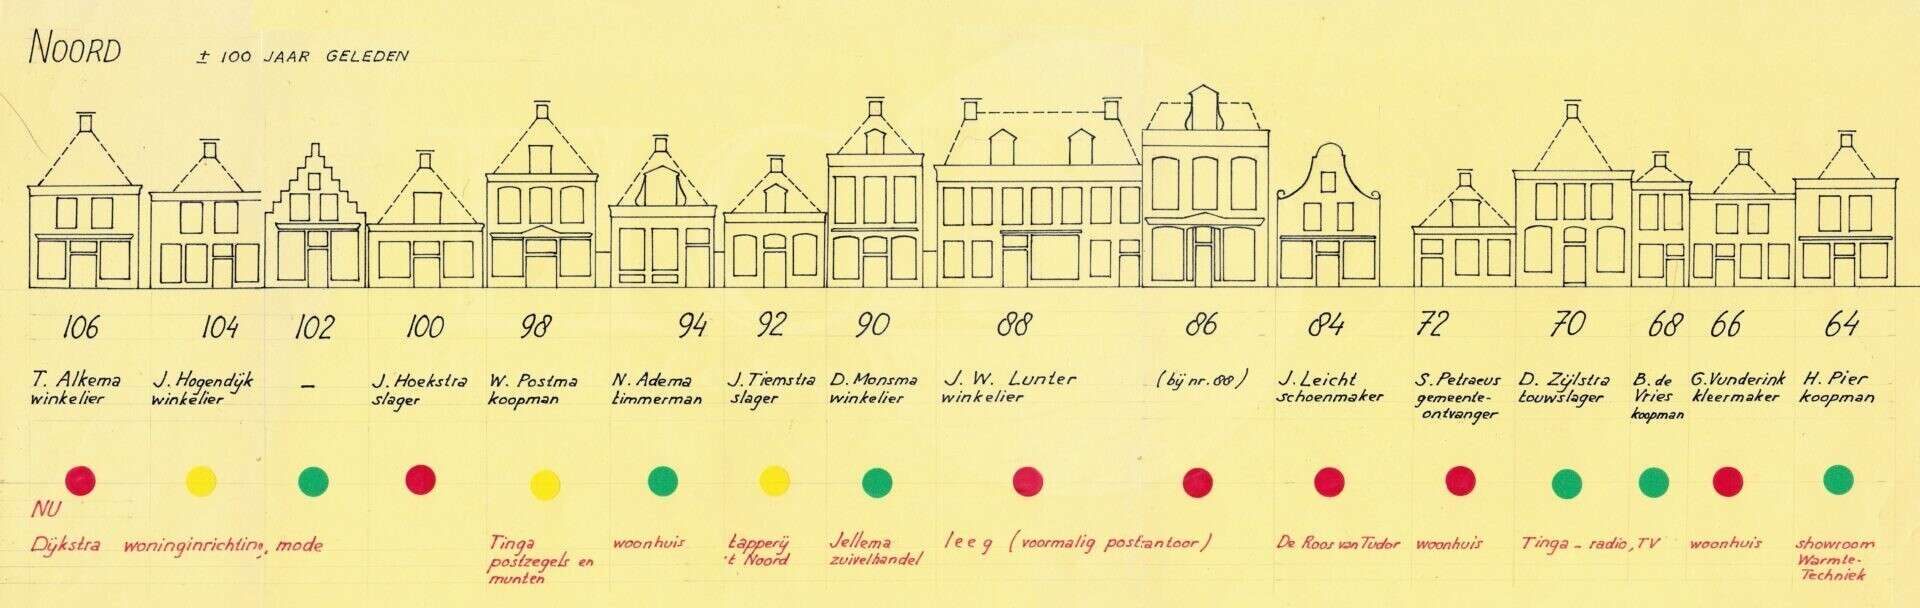 NOORD ± 100 JAAR GELEDEN
106 104 102 100 98 94 92 90 88 86 84 72 70 68 66 64
T. Alkema
winkelier
J. Hogendijk
winkelier
–
J. Hoekstra
slager
W. Postma
koopman
N. Adema
timmerman
J. Tiemstra
slager
D. Monsma
winkelier
J. W. Lunter
winkelier
(bij nr. 88)
J. Leicht
schoenmaker
S. Petraeus
gemeente-
ontvanger
D. Zijlstra
touwslager
B. de
Vries
koopman
G. Vunderink
kleermaker
H. Pier
koopman
NU
Dijkstra woninginrichting, mode
Tinga
postzegels en
munten
woonhuis
tapperij
't Noord
Jellema
zuivelhandel
leeg (voormalig postkantoor)
De Roos van Tudor
woonhuis
Tinga - radio, TV
woonhuis
showroom
Warmte-
Techniek